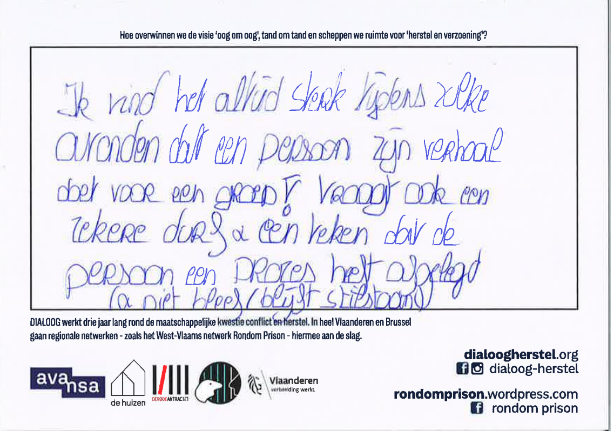 Hoe overwinnen we de visie 'oog om oog', tand om tand en scheppen we ruimte voor 'herstel en verzoening'?
Ik vind het altijd sterk tijdens zulke
avonden dat een persoon zijn verhaal
doet voor een groep! Vraagt ook een
zekere durf & een teken dat de
persoon een proces heeft afgelegd
(& niet bleef/blijft stilstaan)
DIALOOG werkt drie jaar lang rond de maatschappelijke kwestie conflict en herstel. In heel Vlaanderen en Brussel
gaan regionale netwerken - zoals het West-Vlaams netwerk Rondom Prison - hiermee aan de slag.
dialoogherstel.org
dialoog-herstel
avansa
de huizen
Vlaanderen
verbeelding werkt
rondomprison.wordpress.com
rondom prison